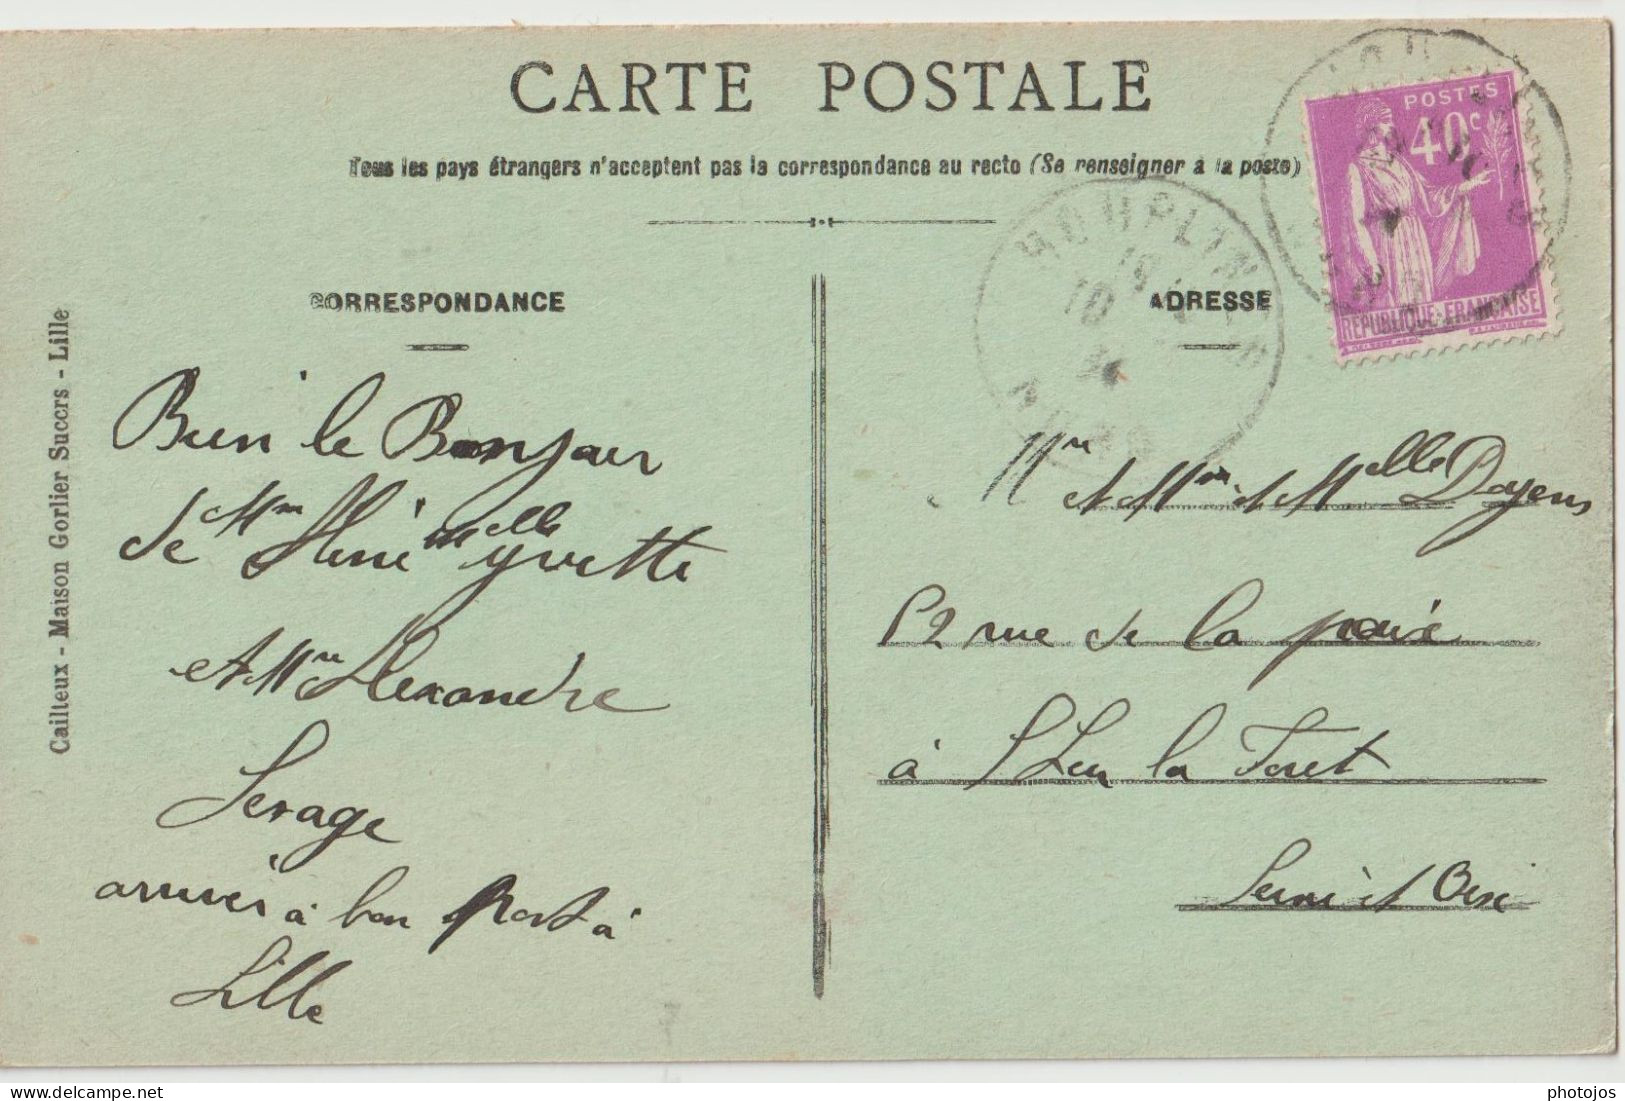 CARTE POSTALE
Tous les pays étrangers n'acceptent pas la correspondance au recto (Se renseigner à la poste)
POSTES
40c
REPUBLIQUE-FRANÇAISE
HOUPLIN
NORD
CORRESPONDANCE
ADRESSE
Cailteux - Maison Gorlier Succrs - Lille
Bien le Bonjour
de Mme et Melle Yvette
et Mr Alexandre
Serage
arrivés à bon Port à
Lille
Mr et Mme et Melle Doyens
rue de la
à S Leu la Foret
Seine et Oise
delcampe.net
photojos